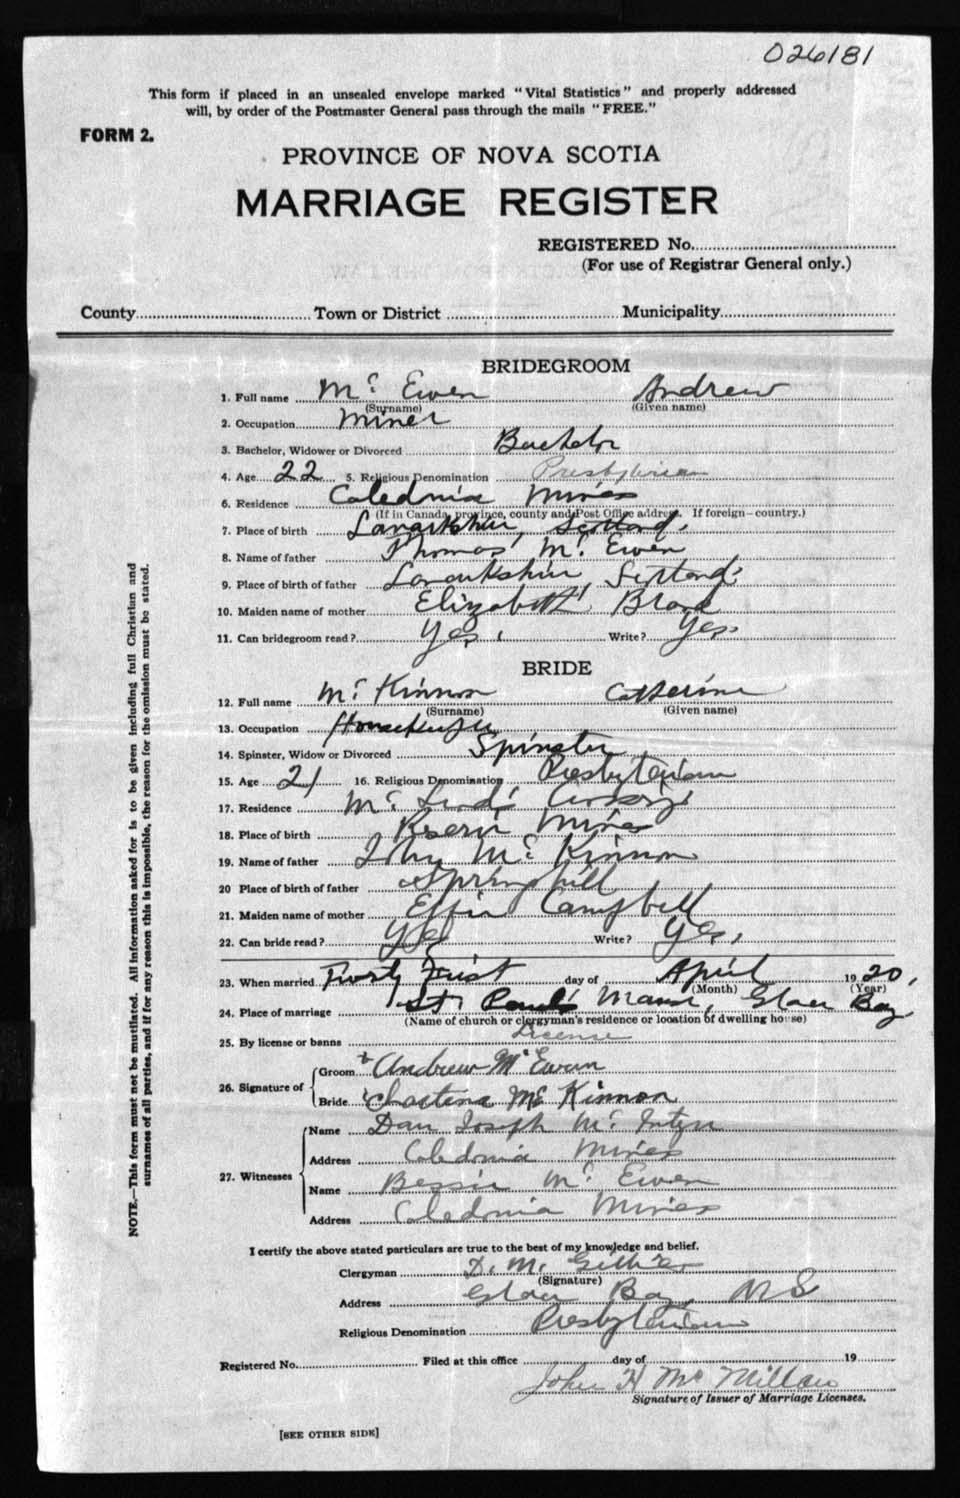 026181
This form if placed in an unsealed envelope marked "Vital Statistics" and properly addressed
will, by order of the Postmaster General pass through the mails "FREE."
FORM 2.
PROVINCE OF NOVA SCOTIA
MARRIAGE REGISTER
REGISTERED No.
(For use of Registrar General only.)
County Town or District Municipality
BRIDEGROOM
1. Full name Mc Ewen Andrew
(Surname) (Given name)
2. Occupation Miner
3. Bachelor, Widower or Divorced Bachelor
4. Age 22 5. Religious Denomination Presbyterian
6. Residence Caledonia Mines
(If in Canada, province, county and Post Office address. If foreign—country.)
7. Place of birth Lanarkshire, Scotland.
8. Name of father Thomas Mc Ewen
9. Place of birth of father Lanarkshire, Scotland.
10. Maiden name of mother Elizabeth
11. Can bridegroom read? Yes. Write? Yes.
BRIDE
12. Full name Mc Kinnon Catherine
(Surname) (Given name)
13. Occupation Housekeeper
14. Spinster, Widow or Divorced Spinster
15. Age 21 16. Religious Denomination Presbyterian
17. Residence
18. Place of birth Reserve Mines
19. Name of father John Mc Kinnon
20 Place of birth of father Springhill
21. Maiden name of mother Effie Campbell
22. Can bride read? Yes Write? Yes.
23. When married First day of April 1920.
(Month) (Year)
24. Place of marriage St Paul's Manse, Glace Bay
(Name of church or clergyman's residence or location of dwelling house)
25. By license or banns License
26. Signature of Groom Andrew McEwen
Bride Mc Kinnon
27. Witnesses Name Dan Joseph Mc Intyre
Address Caledonia Mines
Name Bessie Mc Ewen
Address Caledonia Mines
I certify the above stated particulars are true to the best of my knowledge and belief.
Clergyman D. M. Gillies
(Signature)
Address Glace Bay, N S
Religious Denomination Presbyterian
Registered No. Filed at this office day of 19
John H McMillan
Signature of Issuer of Marriage Licenses.
[SEE OTHER SIDE]
NOTE.—This form must not be mutilated. All information asked for is to be given including full Christian and
surnames of all parties, and if for any reason this is impossible, the reason for the omission must be stated.